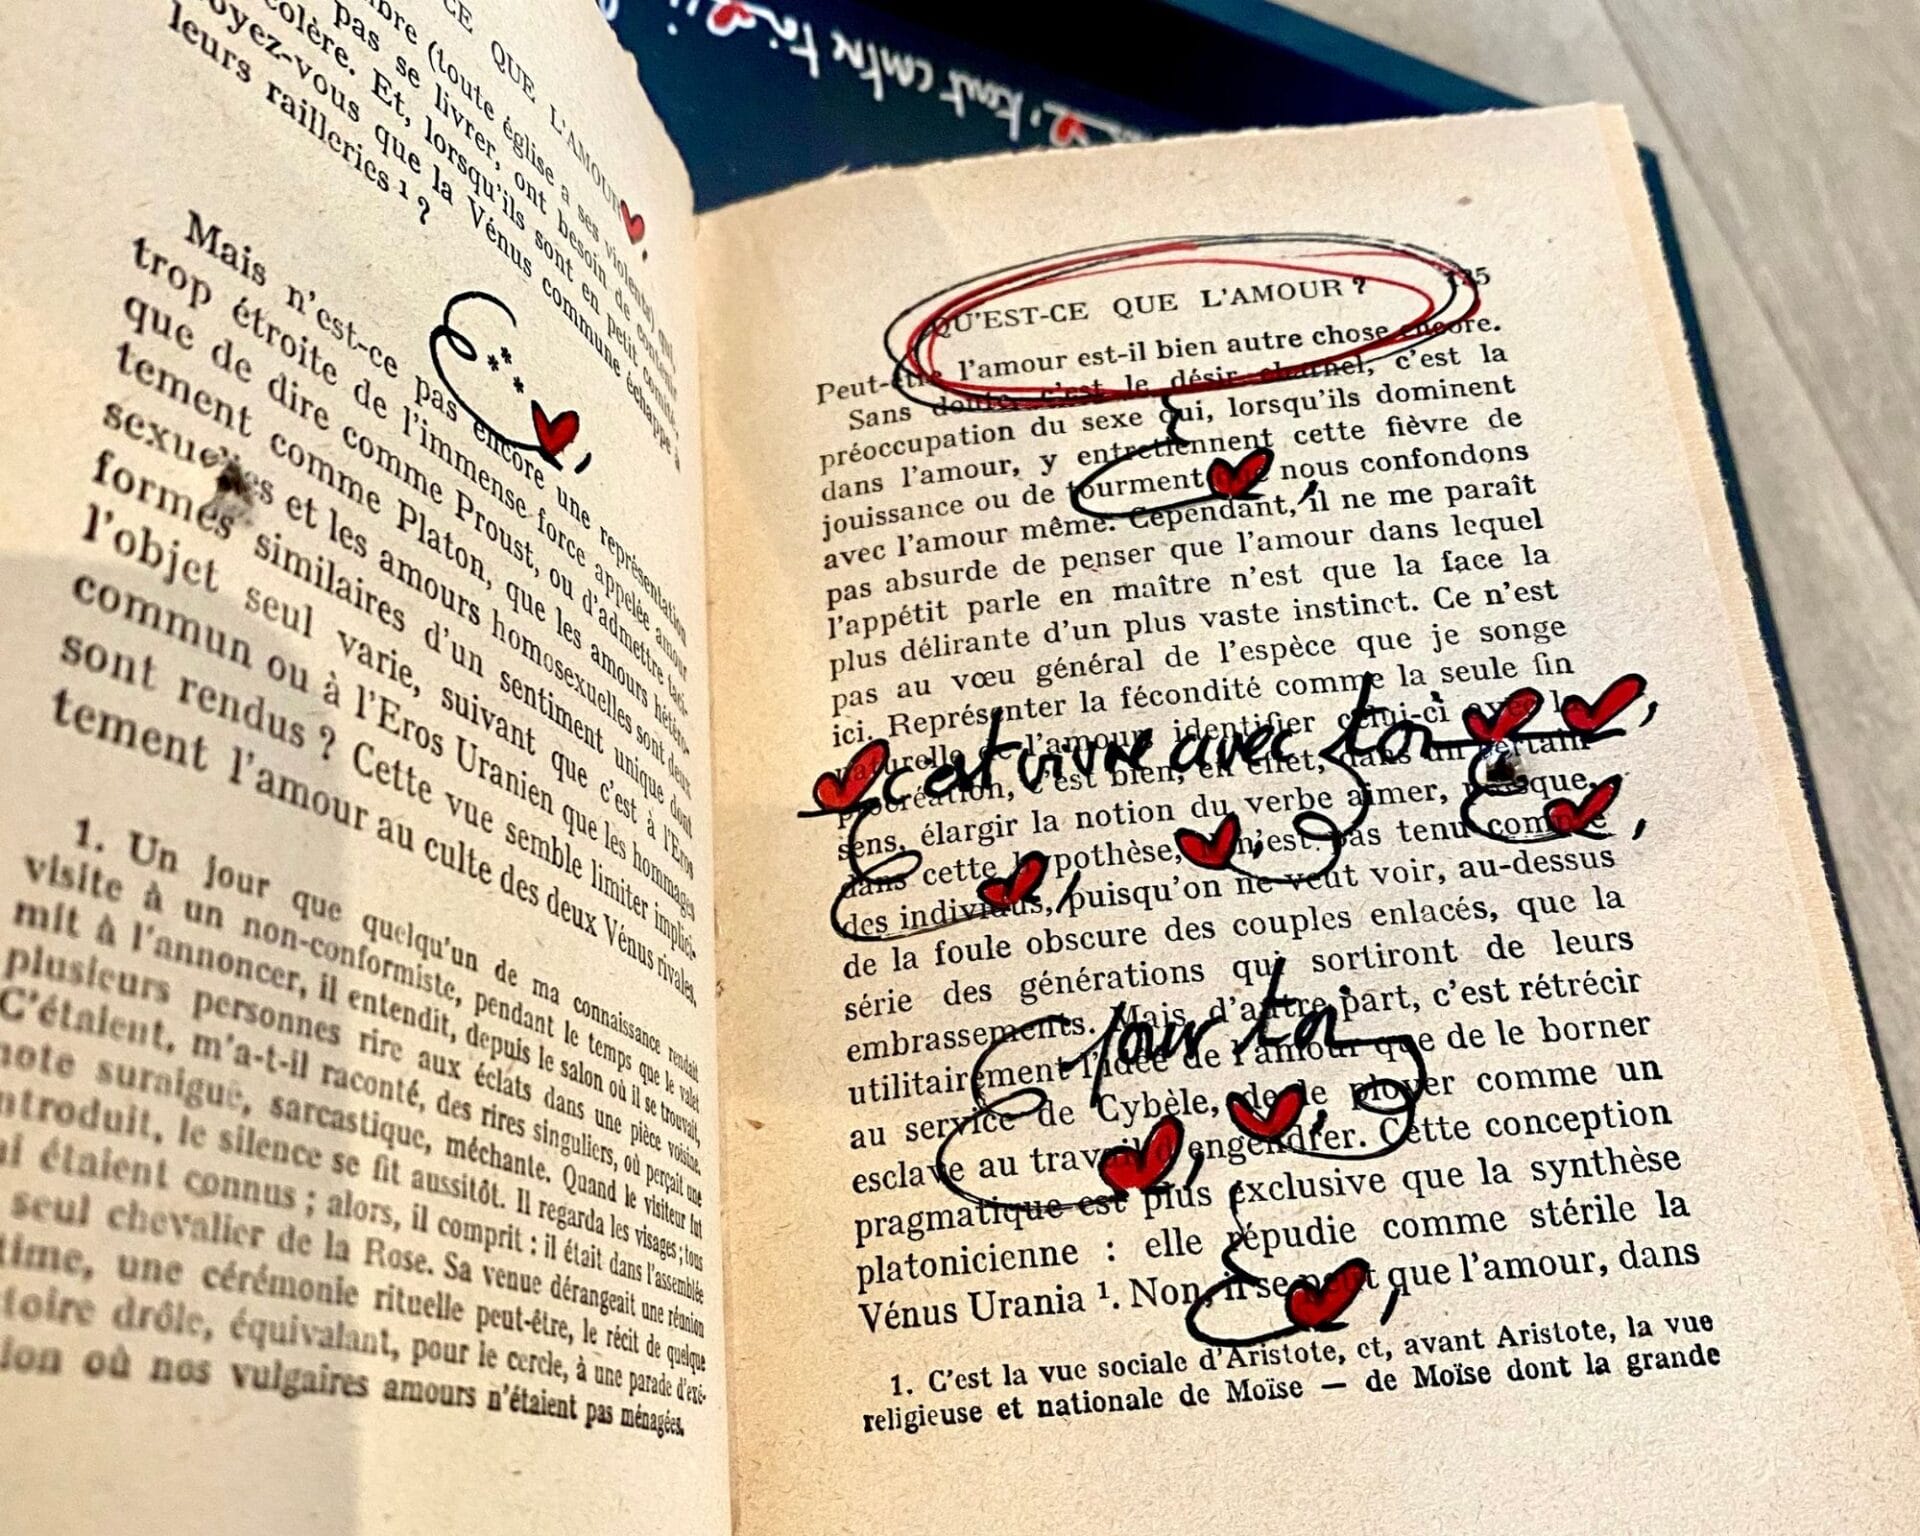 CE QUE L'AMOUR
(toute église a ses violents) qui,
pas se livrer, ont besoin de
colère. Et, lorsqu'ils sont en petit comité,
oyez-vous que la Vénus commune échappe à
leurs railleries 1 ?
Mais n'est-ce pas encore une représentation
trop étroite de l'immense force appelée amour
que de dire comme Proust, ou d'admettre taci-
tement comme Platon, que les amours hétéro-
sexuelles et les amours homosexuelles sont deux
formes similaires d'un sentiment unique dont
l'objet seul varie, suivant que c'est à l'Eros
commun ou à l'Eros Uranien que les hommages
sont rendus ? Cette vue semble limiter implici-
tement l'amour au culte des deux Vénus rivales.
1. Un jour que quelqu'un de ma connaissance rendait
visite à un non-conformiste, pendant le temps que le valet
mit à l'annoncer, il entendit, depuis le salon où il se trouvait,
plusieurs personnes rire aux éclats dans une pièce voisine.
C'étaient, m'a-t-il raconté, des rires singuliers, où perçait une
note suraiguë, sarcastique, méchante. Quand le visiteur fut
ntroduit, le silence se fit aussitôt. Il regarda les visages ; tous
ui étaient connus ; alors, il comprit : il était dans l'assemblée
seul chevalier de la Rose. Sa venue dérangeait une réunion
time, une cérémonie rituelle peut-être, le récit de quelque
toire drôle, équivalant, pour le cercle, à une parade d'exé-
ion où nos vulgaires amours n'étaient pas ménagées.
tout contre toi
QU'EST-CE QUE L'AMOUR ? 135
Peut-être l'amour est-il bien autre chose encore.
Sans doute, c'est le désir charnel, c'est la
préoccupation du sexe qui, lorsqu'ils dominent
dans l'amour, y entretiennent cette fièvre de
jouissance ou de tourment nous confondons
avec l'amour même. Cependant, il ne me paraît
pas absurde de penser que l'amour dans lequel
l'appétit parle en maître n'est que la face la
plus délirante d'un plus vaste instinct. Ce n'est
pas au vœu général de l'espèce que je songe
ici. Représenter la fécondité comme la seule fin
naturelle de l'amour, identifier celui-ci avec la
c'est vivre avec toi
procréation, c'est bien, en effet, dans un certain
sens, élargir la notion du verbe aimer, puisque,
dans cette hypothèse, n'est pas tenu compte
des individus, puisqu'on ne veut voir, au-dessus
de la foule obscure des couples enlacés, que la
série des générations qui sortiront de leurs
embrassements. Mais d'autre part, c'est rétrécir
pour toi
utilitairement l'idée de l'amour que de le borner
au service de Cybèle, de le ployer comme un
esclave au travail d'engendrer. Cette conception
pragmatique est plus exclusive que la synthèse
platonicienne : elle répudie comme stérile la
Vénus Urania 1. Non, il se peut que l'amour, dans
1. C'est la vue sociale d'Aristote, et, avant Aristote, la vue
religieuse et nationale de Moïse — de Moïse dont la grande